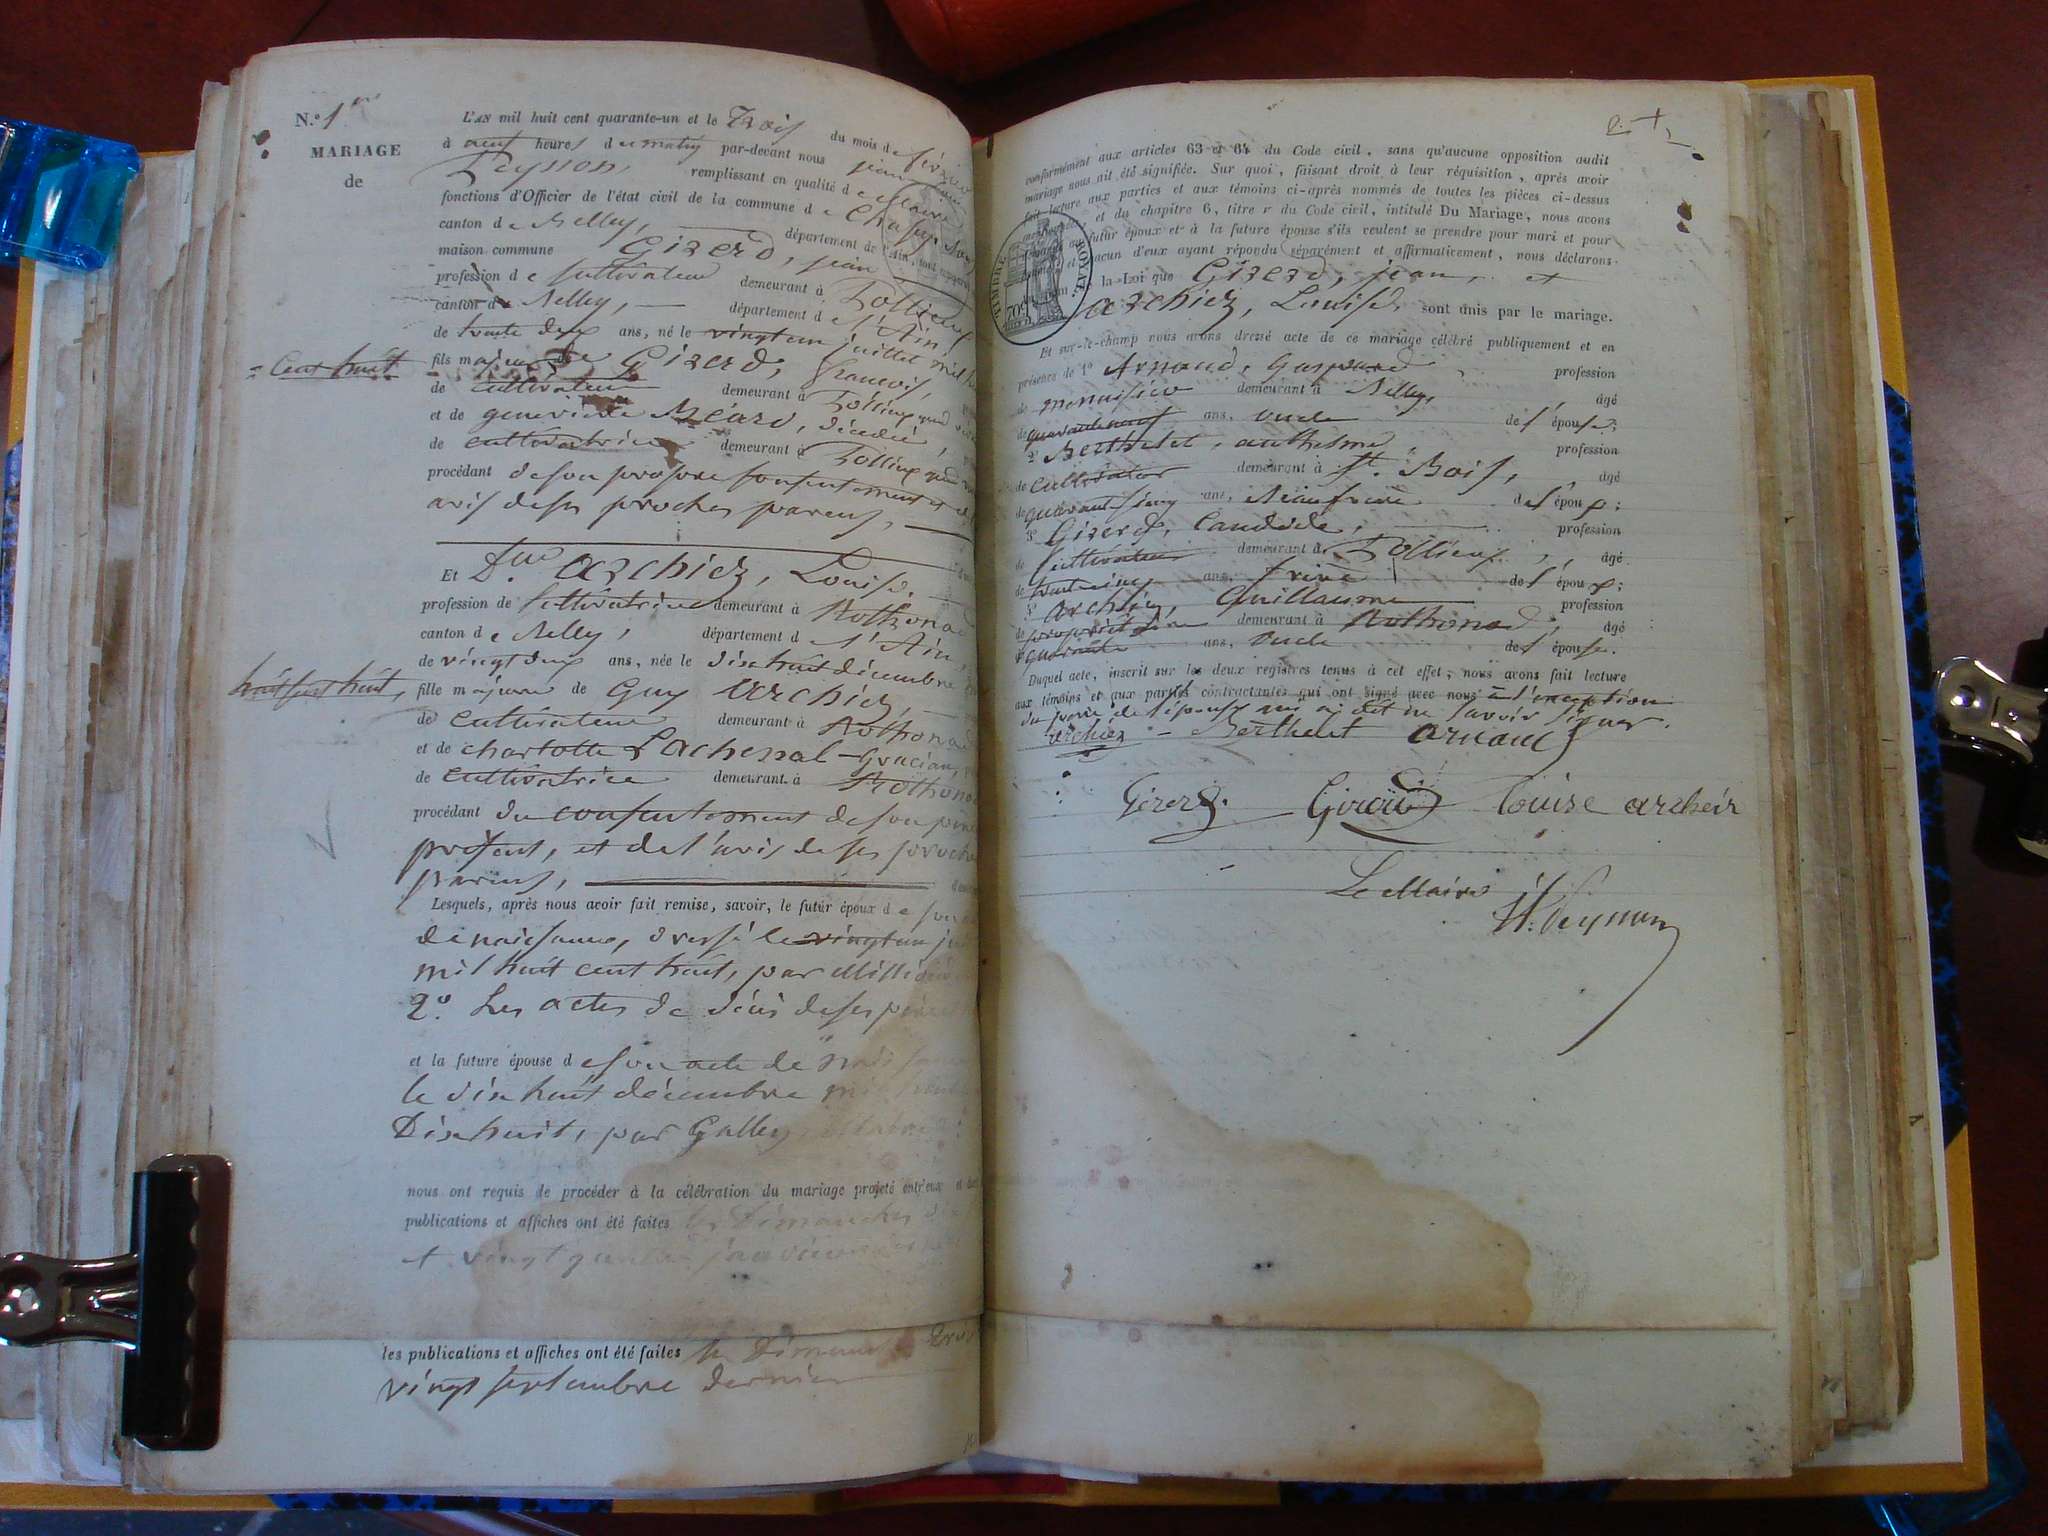 N.º 1er
MARIAGE
de
L'AN mil huit cent quarante-un et le Trois du mois de février
à neuf heures du matin par-devant nous jean
Peysson, remplissant en qualité de Maire
fonctions d'Officier de l'état civil de la commune de
canton de Belley, département de l'Ain,
maison commune Girerd, jean
profession de Cultivateur demeurant à Pollieux
canton de Belley, département de l'Ain
de trente deux ans, né le vingt un juillet mil
= Cent huit
fils majeur de Girerd, françois,
de cultivateur demeurant à Pollieux quand
et de geneviève Béard, décédée
de cultivatrice demeurant à Pollieux quand
procédant de son propre consentement et de l'
avis de ses proches parens,
Et Dlle archiez, Louise,
profession de Cultivatrice demeurant à Rothonod
canton de Belley, département de l'Ain,
de vingt deux ans, née le dix huit décembre
huit cent huit,
fille majeure de Guy archiez,
de cultivateur demeurant à Rothonod
et de charlotte Lachenal-Gracian,
de cultivatrice demeurant à Rothonod
procédant du consentement de son père
présent, et de l'avis de ses proches
parens,
Lesquels, après nous avoir fait remise, savoir, le futur époux de son
de naissance, dressé le vingt un
mil huit cent huit, par
2º. Les actes de décès de ses père
et la future épouse de son acte de naissance
le dix huit décembre mil huit cent
Dix huit, par Galley,
nous ont requis de procéder à la célébration du mariage projeté entr'eux et dont
publications et affiches ont été faites les Dimanches
et vingt quatre janvier
les publications et affiches ont été faites les Dimanches
vingt septembre dernier
2.
conformément aux articles 63 et 64 du Code civil, sans qu'aucune opposition audit
mariage nous ait été signifiée. Sur quoi, faisant droit à leur réquisition, après avoir
fait lecture aux parties et aux témoins ci-après nommés de toutes les pièces ci-dessus
et du chapitre 6, titre v du Code civil, intitulé Du Mariage, nous avons
futur époux et à la future épouse s'ils veulent se prendre pour mari et pour
chacun d'eux ayant répondu séparément et affirmativement, nous déclarons
TIMBRE ROYAL
70c
la Loi que Girerd, jean, et
archiez, Louise, sont unis par le mariage.
Et sur-le-champ nous avons dressé acte de ce mariage célébré publiquement et en
présence de 1º Arnaud, Gaspard, profession
de menuisier demeurant à Belley, âgé
de quarante neuf ans, oncle de l'épouse;
2º Berthelet, anthelme, profession
de cultivateur demeurant à St. Bois, âgé
de quarante cinq ans, Beaufrère de l'époux;
3º Girerd, Candide, profession
de Cultivateur demeurant à Pollieux, âgé
de trente cinq ans, frère de l'époux;
archiez, Guillaume profession
de propriétaire demeurant à Rothonod, âgé
de quarante ans, oncle de l'épouse.
Duquel acte, inscrit sur les deux registres tenus à cet effet, nous avons fait lecture
aux témoins et aux parties contractantes qui ont signé avec nous à l'exception
du père de l'épouse qui a dit ne savoir signer.
archiez - Berthelet arnaud
Girerd. Giroud Louise archeir
Le Maire
Peysson